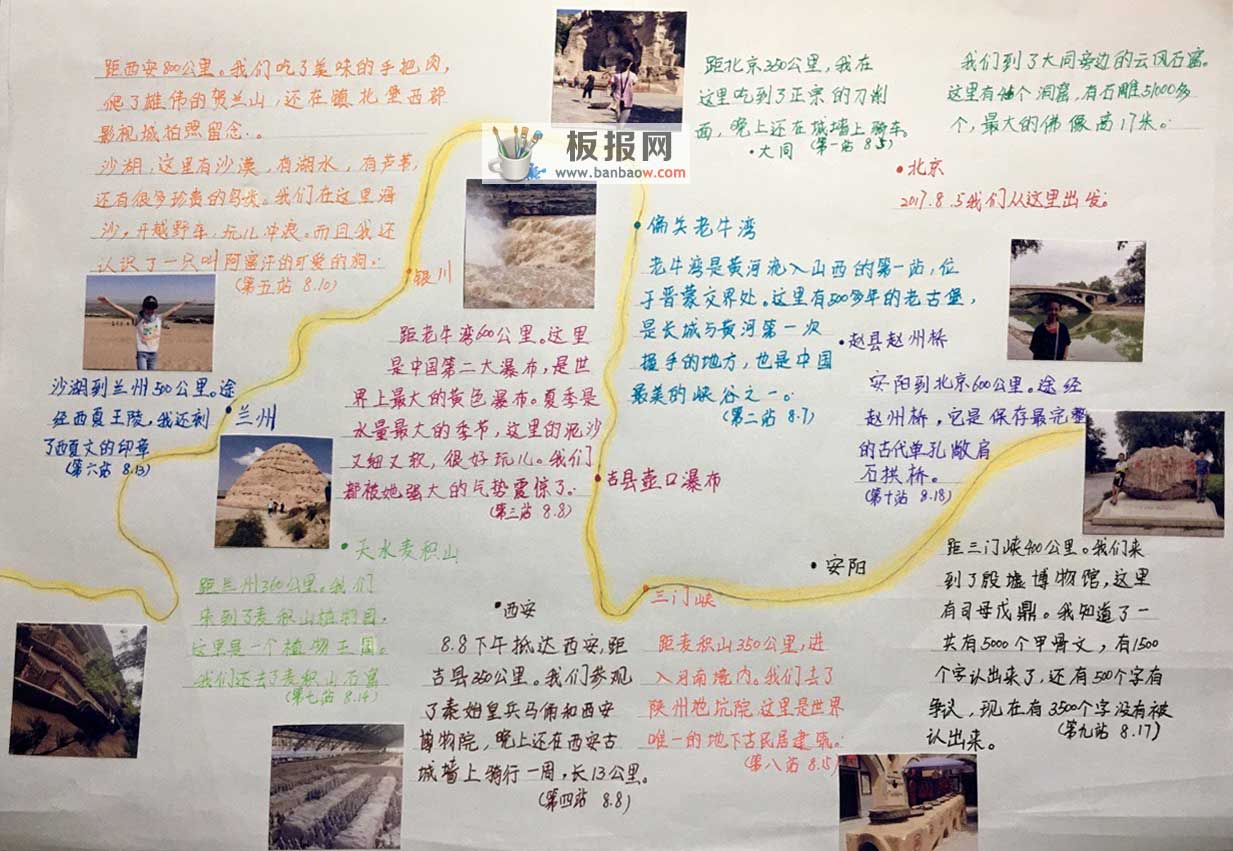 距西安800公里。我们吃了美味的手把肉，
爬了雄伟的贺兰山，还在镇北堡西部
影视城拍照留念。
沙湖，这里有沙漠，有湖水，有芦苇，
还有很多珍贵的鸟类。我们在这里滑
沙，开越野车，玩儿冲浪。而且我还
认识了一只叫阿蜜汗的可爱的狗。
（第五站 8.10）
银川
板报网
www.banbaow.com
距北京350公里，我在
这里吃到了正宗的刀削
面，晚上还在城墙上骑车。
大同 （第一站 8.5）
我们到了大同旁边的云冈石窟。
这里有 个洞窟，有石雕51000多
个，最大的佛像高17米。
北京
2017.8.5我们从这里出发。
偏关老牛湾
老牛湾是黄河流入山西的第一站，位
于晋蒙交界处。这里有500多年的老古堡，
是长城与黄河第一次
握手的地方，也是中国
最美的峡谷之一。
（第二站 8.7）
赵县赵州桥
安阳到北京600公里。途经
赵州桥，它是保存最完整
的古代单孔敞肩
石拱桥。
（第十站 8.18）
距老牛湾600公里。这里
是中国第二大瀑布，是世
界上最大的黄色瀑布。夏季是
水量最大的季节，这里的泥沙
又细又软，很好玩儿。我们
都被她强大的气势震惊了。
（第三站 8.8）
吉县壶口瀑布
沙湖到兰州500公里。途
经西夏王陵，我还刻
了西夏文的印章
（第六站 8.13）
兰州
天水麦积山
距兰州360公里。我们
来到了麦积山植物园，
这里是一个植物王国。
我们还去了麦积山石窟
（第七站 8.14）
西安
8.8下午抵达西安，距
吉县350公里。我们参观
了秦始皇兵马俑和西安
博物院，晚上还在西安古
城墙上骑行一周，长13公里。
（第四站 8.8）
三门峡
距麦积山350公里，进
入河南境内。我们去了
陕州地坑院，这里是世界
唯一的地下古民居建筑。
（第八站 8.15）
安阳
距三门峡400公里。我们来
到了殷墟博物馆，这里
有司母戊鼎。我知道了一
共有5000个甲骨文，有1500
个字认出来了，还有500个字有
争议，现在有3500个字没有被
认出来。
（第九站 8.17）